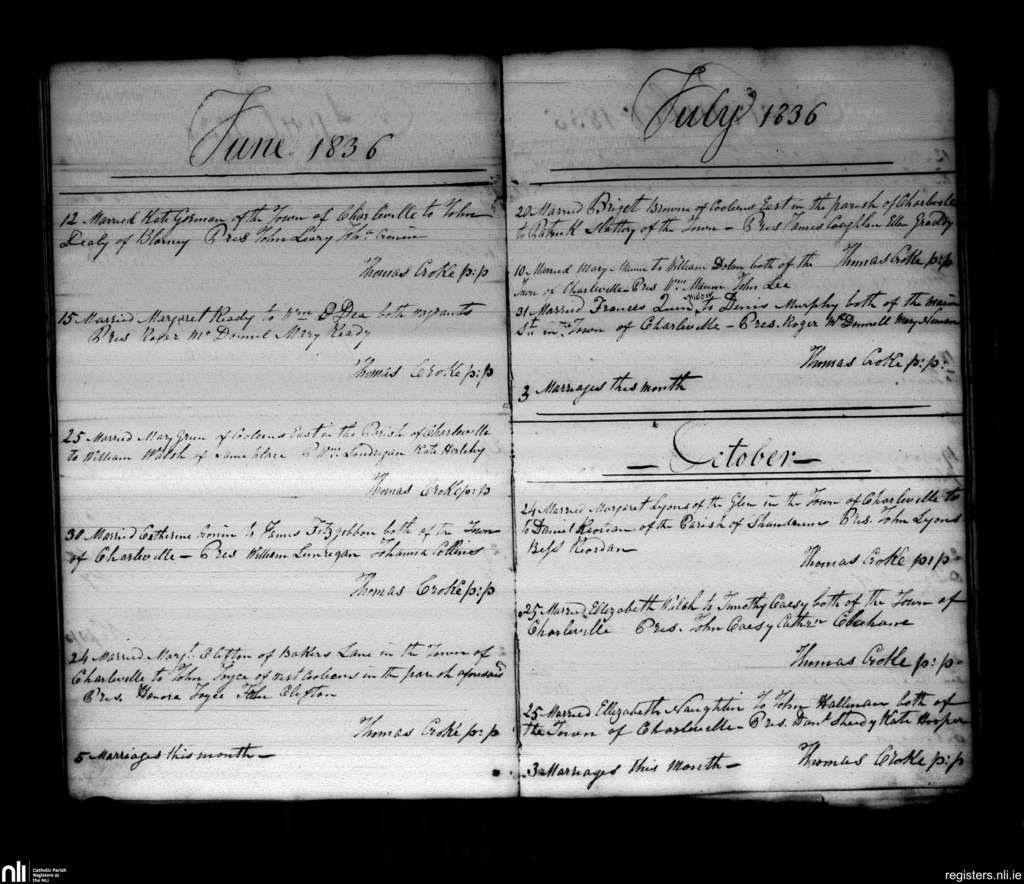 June 1836
12 Married Kate Gorman of the Town of Charleville to John
Dealy of Blarney Pres John Leary Jon. Cronin
Thomas Croke p:p
15 Married Margaret Ready to Wm O Dea both
Pres Roger Mc Donnel Mary Ready
Thomas Croke p:p
25 Married Mary Green of Coolerus East in the Parish of Charleville
to William Walsh of same place P Wm Londregan Kate Herlehy
Thomas Croke p:p
30 Married Catherine Cronin to James Fitzgibbon both of the Town
of Charleville – Pres William Lunregan Johanna Collins
Thomas Croke p:p
24 Married Margt. Clifton of Bakers Lane in the Town of
Charleville to John Joyce of west Cooleens in the parish aforesaid
Pres. Honora Joyce Clifton
Thomas Croke p:p
5 Marriages this month –
July 1836
20 Married Briget Browne of Coolerus East in the parish of Charleville
to Patrick Slattery of the Town – Pres James Coughlan Ellen Gready
10 Married Mary to William Dolan both of the Thomas Croke p:p
Town of Charleville – Pres Wm. John Lee
31 Married Frances Quin widow to Denis Murphy both of the main
St. in the Town of Charleville – Pres. Roger Mc Donnell Mary
Thomas Croke p:p:
3 Marriages this month
– October –
24 Married Margaret Lyons of the Glen in the Town of Charleville to
to Daniel Riordan of the Parish of Pres. John Lyons
Bess Riordan –
Thomas Croke p:p
25 Married Ellizabeth Walsh to Timothy Caesy both of the Town of
Charleville Pres. John Caesy Cathrn
Thomas Croke p:p –
25 Married Ellizabeth Naughtin to John Hallinan both of
the Town of Charleville – Pres. Danl. Sheedy Kate Hooper
3 Marriages this Month – Thomas Croke p:p
nli Catholic Parish
Registers at
the NLI
registers.nli.ie